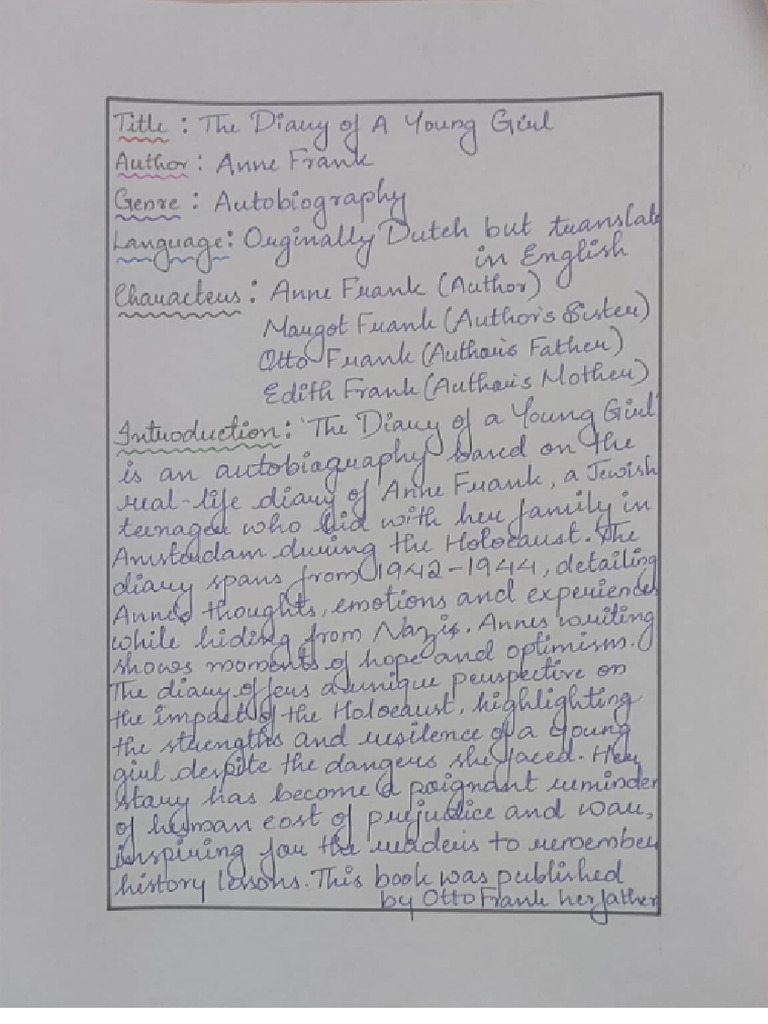 Title : The Diary of A Young Girl
Author : Anne Frank
Genre : Autobiography
Language: Orginally Dutch but translate
in English
Characters : Anne Frank (Author)
Margot Frank (Author's Sister)
Otto Frank (Author's Father)
Edith Frank (Author's Mother)
Introduction: 'The Diary of a Young Girl'
is an autobiography based on the
real-life diary of Anne Frank, a Jewish
teenager who hid with her family in
Amsterdam during the Holocaust. The
diary spans from 1942-1944, detailing
Anne's thoughts, emotions and experiences
while hiding from Nazis. Annes writing
shows moments of hope and optimism.
The diary offers a unique perspective on
the impact of the Holocaust, highlighting
the strengths and resilence of a young
girl despite the dangers she faced. Her
story has become a poignant reminder
of human cost of prejudice and war,
inspiring for the readers to remember
history lessons. This book was published
by Otto Frank her father